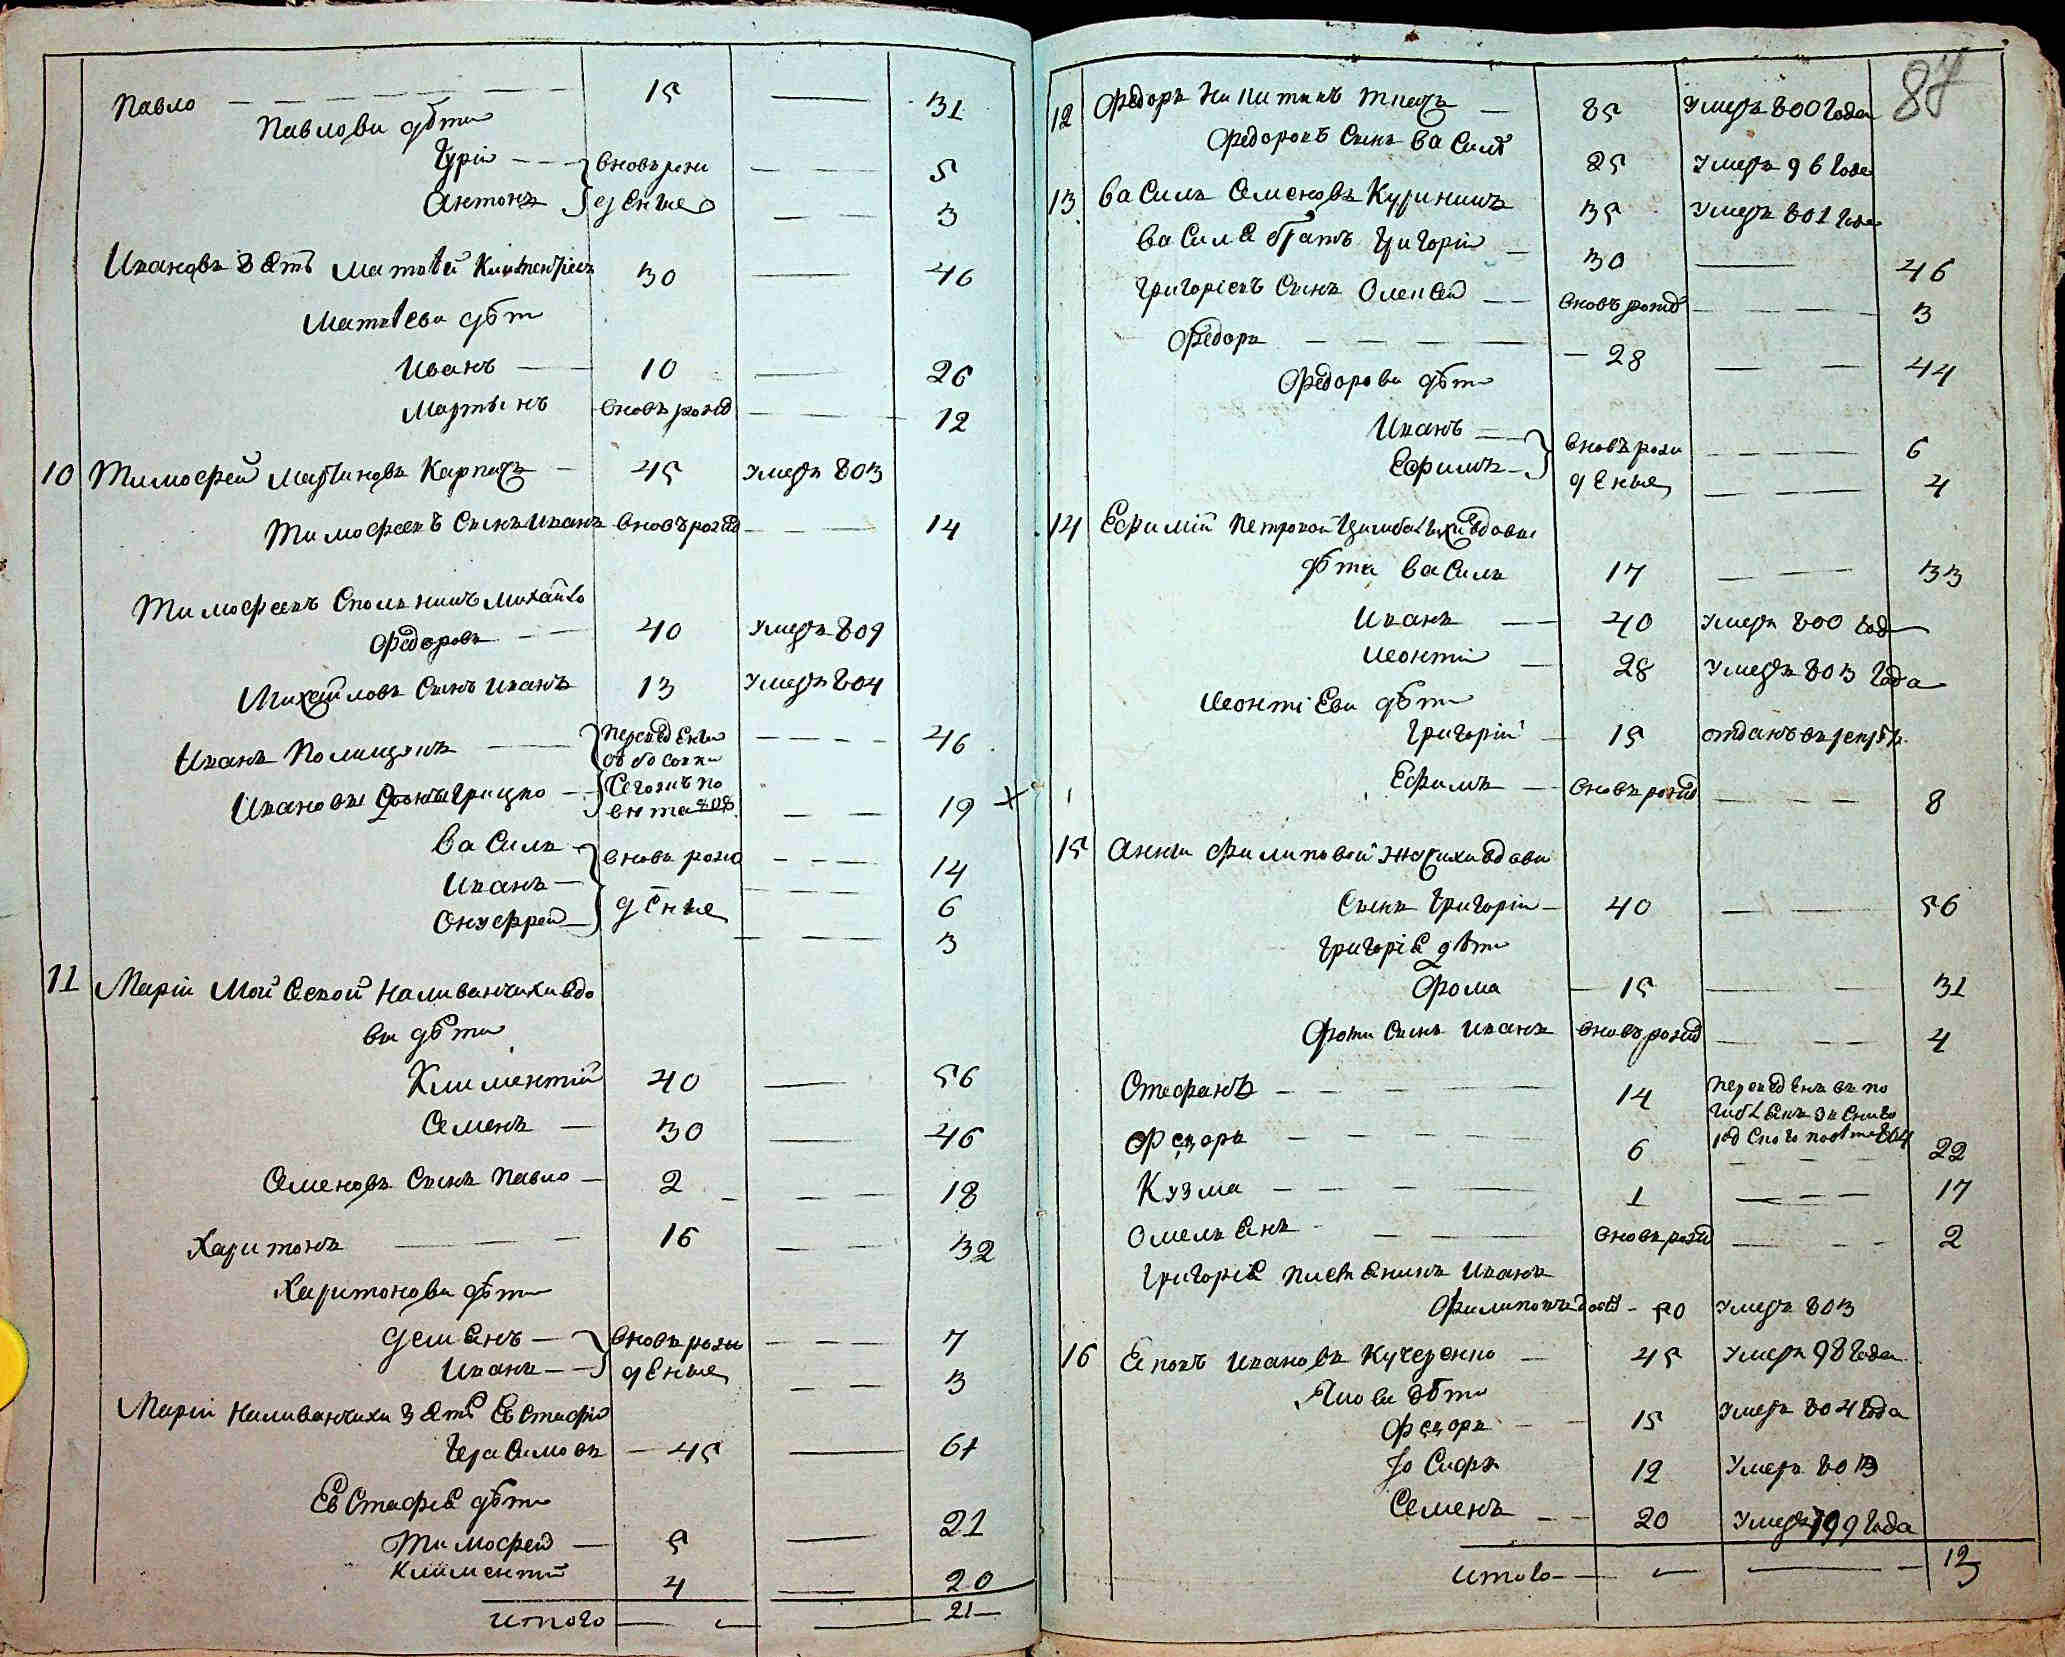 Павло — 15 — 31
Павлови дѣти
Гурій — вновь рож 5
Антонъ — денные 3
Ивановъ зять Матвѣй Климентіевъ 30 — 46
Матвѣеви дѣти
Иванъ — 10 — 26
Мартынъ вновь рожд — 12
10 Тимофей Мартиновъ Карпачъ — 45 умеръ 803
Тимофеевъ сынъ Иванъ вновь рожд — 14
Тимофеевъ Сполникъ Михайло
Федоровъ — 40 умеръ 809
Михайловъ сынъ Иванъ 13 умеръ 804
Иванъ Полищукъ — переведены 46
Ивановы сыны Грицко — 19
Василь — вновь рож 14
Иванъ — денные 6
Онуфрей — 3
11 Маріи Мойсеевой Наливанчихи вдо
вы дѣти
Климентій 40 — 56
Семенъ — 30 — 46
Семеновъ сынъ Павло — 2 — 18
Харитонъ — 16 — 32
Харитонови дѣти
Демянъ — вновь рож 7
Иванъ — денные 3
Маріи Наливанчихи зять Евстафій
Герасимовъ — 45 — 61
Евстафіе дѣти
Тимофей — 5 — 21
Климентій 4 — 20
итого — 21
87
12 Федоръ Никитинъ Ткачъ — 85 умеръ 800 года
Федоровъ сынъ Василь 25 умеръ 96 года
13 Василь Семеновъ 35 умеръ 801 года
Василе братъ Григорій — 30 — 46
Григоріевъ сынъ Олексей — вновь рожд — 3
Федоръ — 28 — 44
Федорови дѣти
Иванъ — вновь рож 6
Ефимъ — денные 4
14 Ефиміи Петровой вдовы
дѣти Василь 17 — 33
Иванъ — 40 умеръ 800 год
Леонтій — 28 умеръ 803 года
Леонтіеви дѣти
Григорій — 15 отданъ в рекруты
Ефимъ — вновь рожд — 8
15 Анны Филиповой вдовы
сынъ Григорій — 40 — 56
Григоріе дѣти
Фома — 15 — 31
Фоми сынъ Иванъ вновь рожд — 4
Стефанъ — 14 переведенъ
Федоръ — 6 — 22
Кузма — 1 — 17
Омельянъ — вновь рожд — 2
Григоріе Иванъ
Филиповъ — 50 умеръ 803
16 Яковъ Ивановъ Кучеренко — 45 умеръ 98 года
Якови дѣти
Федоръ — 15 умеръ 804 года
Іосифъ 12 умеръ 803
Семенъ — 20 умеръ 799 года
итого — 13